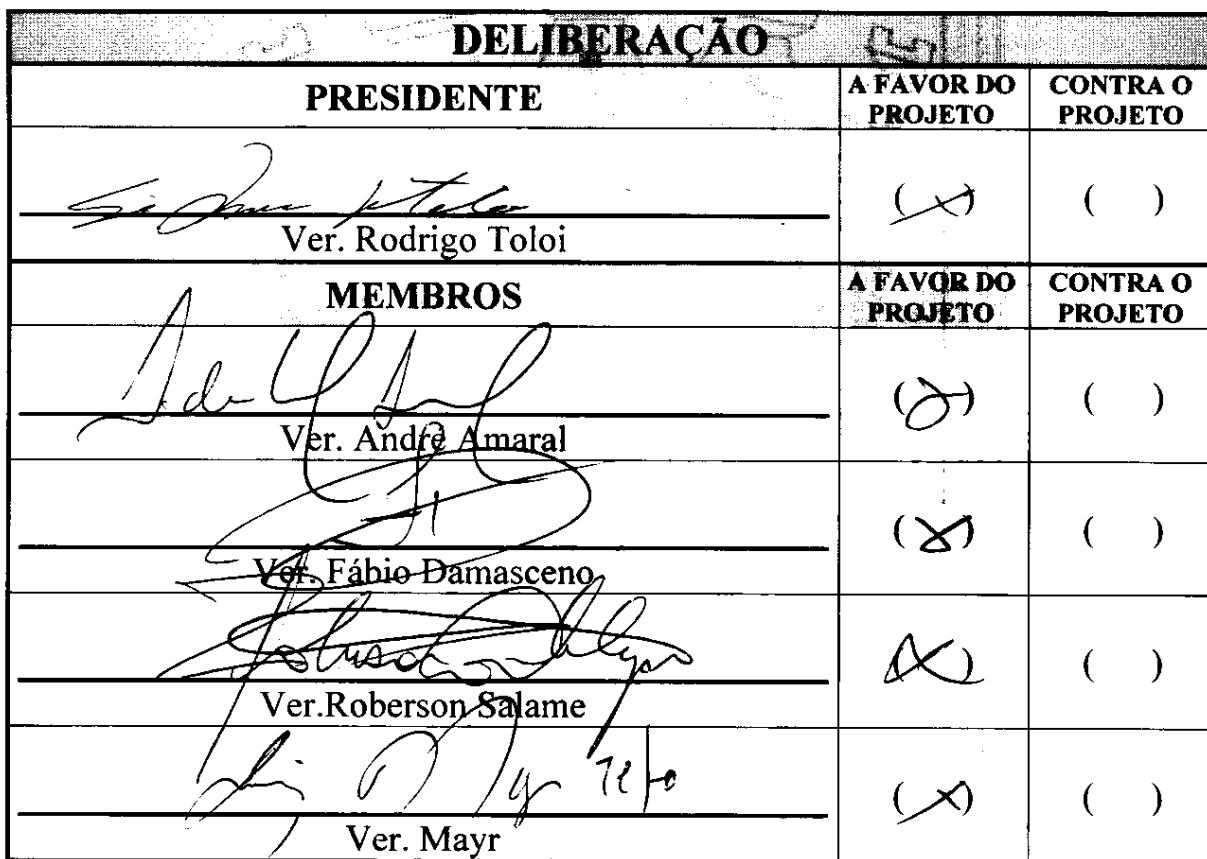 DELIBERAÇÃO
PRESIDENTE A FAVOR DO PROJETO CONTRA O PROJETO
Ver. Rodrigo Toloi (X) ( )
MEMBROS A FAVOR DO PROJETO CONTRA O PROJETO
Ver. Andre Amaral (X) ( )
Ver. Fábio Damasceno (X) ( )
Ver.Roberson Salame (X) ( )
Ver. Mayr (X) ( )